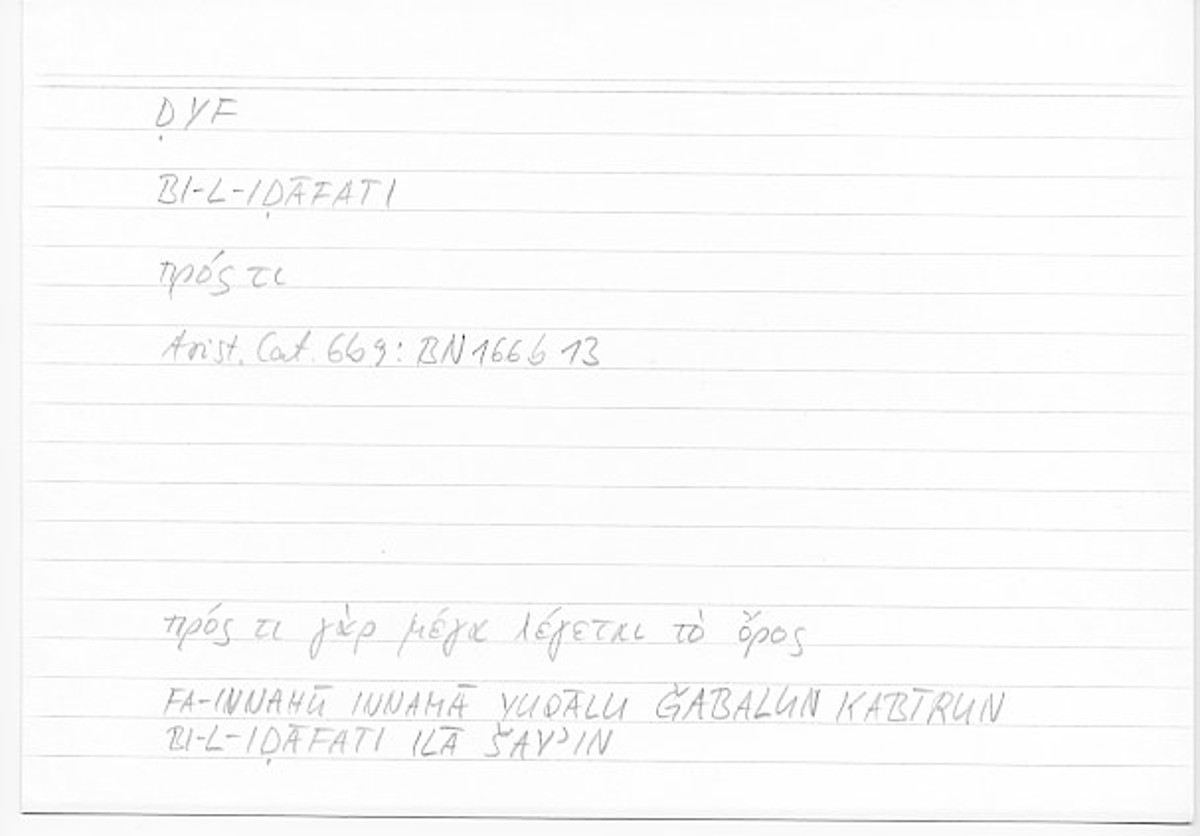 ḌYF
BI-L-IḌĀFATI
πρός τι
Arist. Cat. 6b9: BN 166b 13
πρός τι γὰρ μέγα λέγεται τὸ ὄρος
FA-INNAHŪ INNAMĀ YUQĀLU ǦABALUN KABĪRUN
BI-L-IḌĀFATI ILĀ ŠAYʾIN